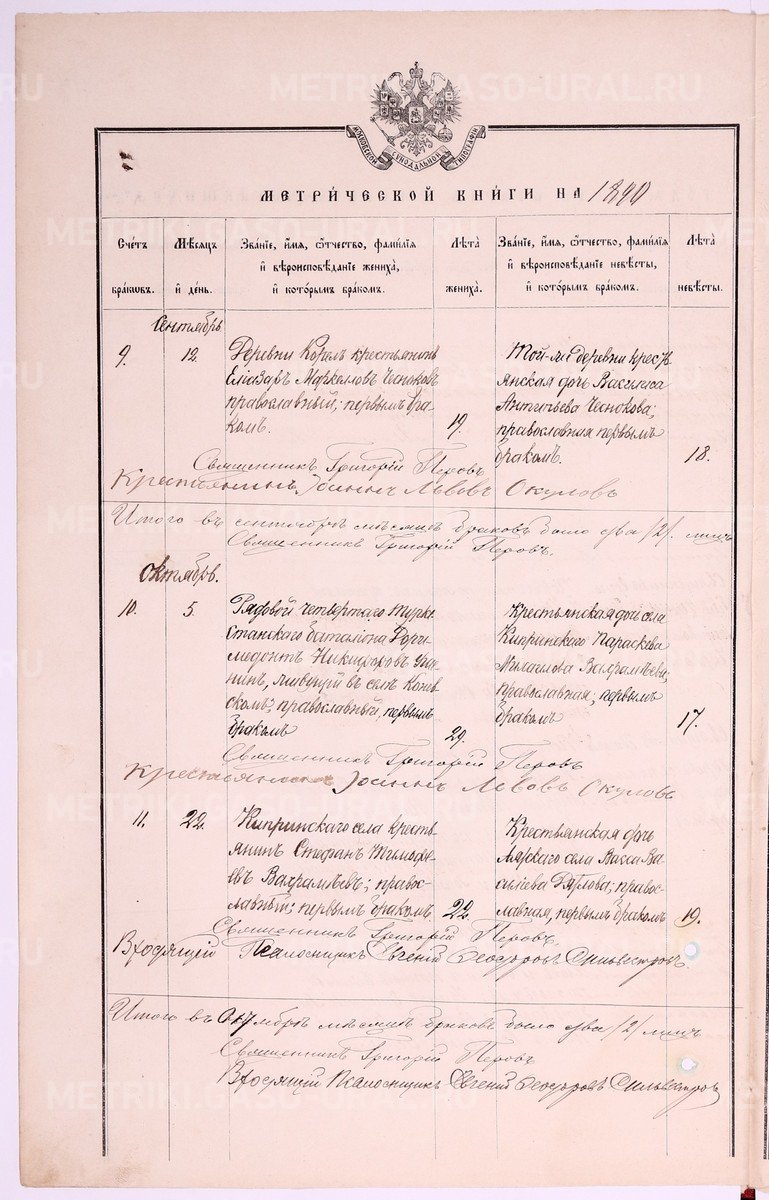 METRIK.GASO-URAL.RU
МОСКОВСКОЙ СѴНОДАЛЬНОЙ ТИПОГРАФІИ
МЕТРИ́ЧЕСКОЙ КНИ́ГИ НА 1890
Сче́тъ бра́кωвъ. Мѣ́сяцъ и҆ де́нь. Зва́нїе, и҆́мя, ѻ҆́тчество, фамилїя и҆ вѣроисповѣ́данїе жениха̀, и҆ кото́рымъ бра́комъ. Лѣ́та жениха̀. Зва́нїе, и҆́мя, ѻ҆́тчество, фамилїя и҆ вѣроисповѣ́данїе невѣ́сты, и҆ кото́рымъ бра́комъ. Лѣ́та невѣ́сты.
Сентябрь
9. 12. Деревни Корелъ крестьянинъ
Елїазаръ Маркеловъ Чесноковъ
православный; первымъ бра-
комъ. 19.
Той-же деревни кресть-
янская дочь Василиса
Антипьева Чеснокова;
православная первымъ
бракомъ. 18.
Священникъ Григорій Перовъ
Крестьянинъ Іоаннъ Львовъ Окуловъ
Итого въ сентябрѣ мѣсяцѣ браковъ было два /2/.
Священникъ Григорій Перовъ.
Октябрь.
10. 5. Рядовой четвертаго Турке-
станскаго баталіона
Никифоровъ
живущій въ селѣ Конев-
скомъ; православный, первымъ
бракомъ 29.
Крестьянская дочь села
Кипринскаго Параскева
Михаилова Вахрамѣева;
православная; первымъ
бракомъ 17.
Священникъ Григорій Перовъ
Крестьянинъ Іоаннъ Львовъ Окуловъ
11. 22. Кипринскаго села кресть-
янинъ Стефанъ Тимофе-
евъ Вахрамѣевъ; право-
славный; первымъ бракомъ 22.
Крестьянская дочь
села Васса Ва-
силіева Дятлова; право-
славная, первымъ бракомъ 19.
Священникъ Григорій Перовъ.
Псаломщикъ Евгеній Ѳеодоровъ Сильвестровъ.
Итого въ Октябрѣ мѣсяцѣ браковъ было два /2/
Священникъ Григорій Перовъ
Псаломщикъ Евгеній Ѳеодоровъ Сильвестровъ